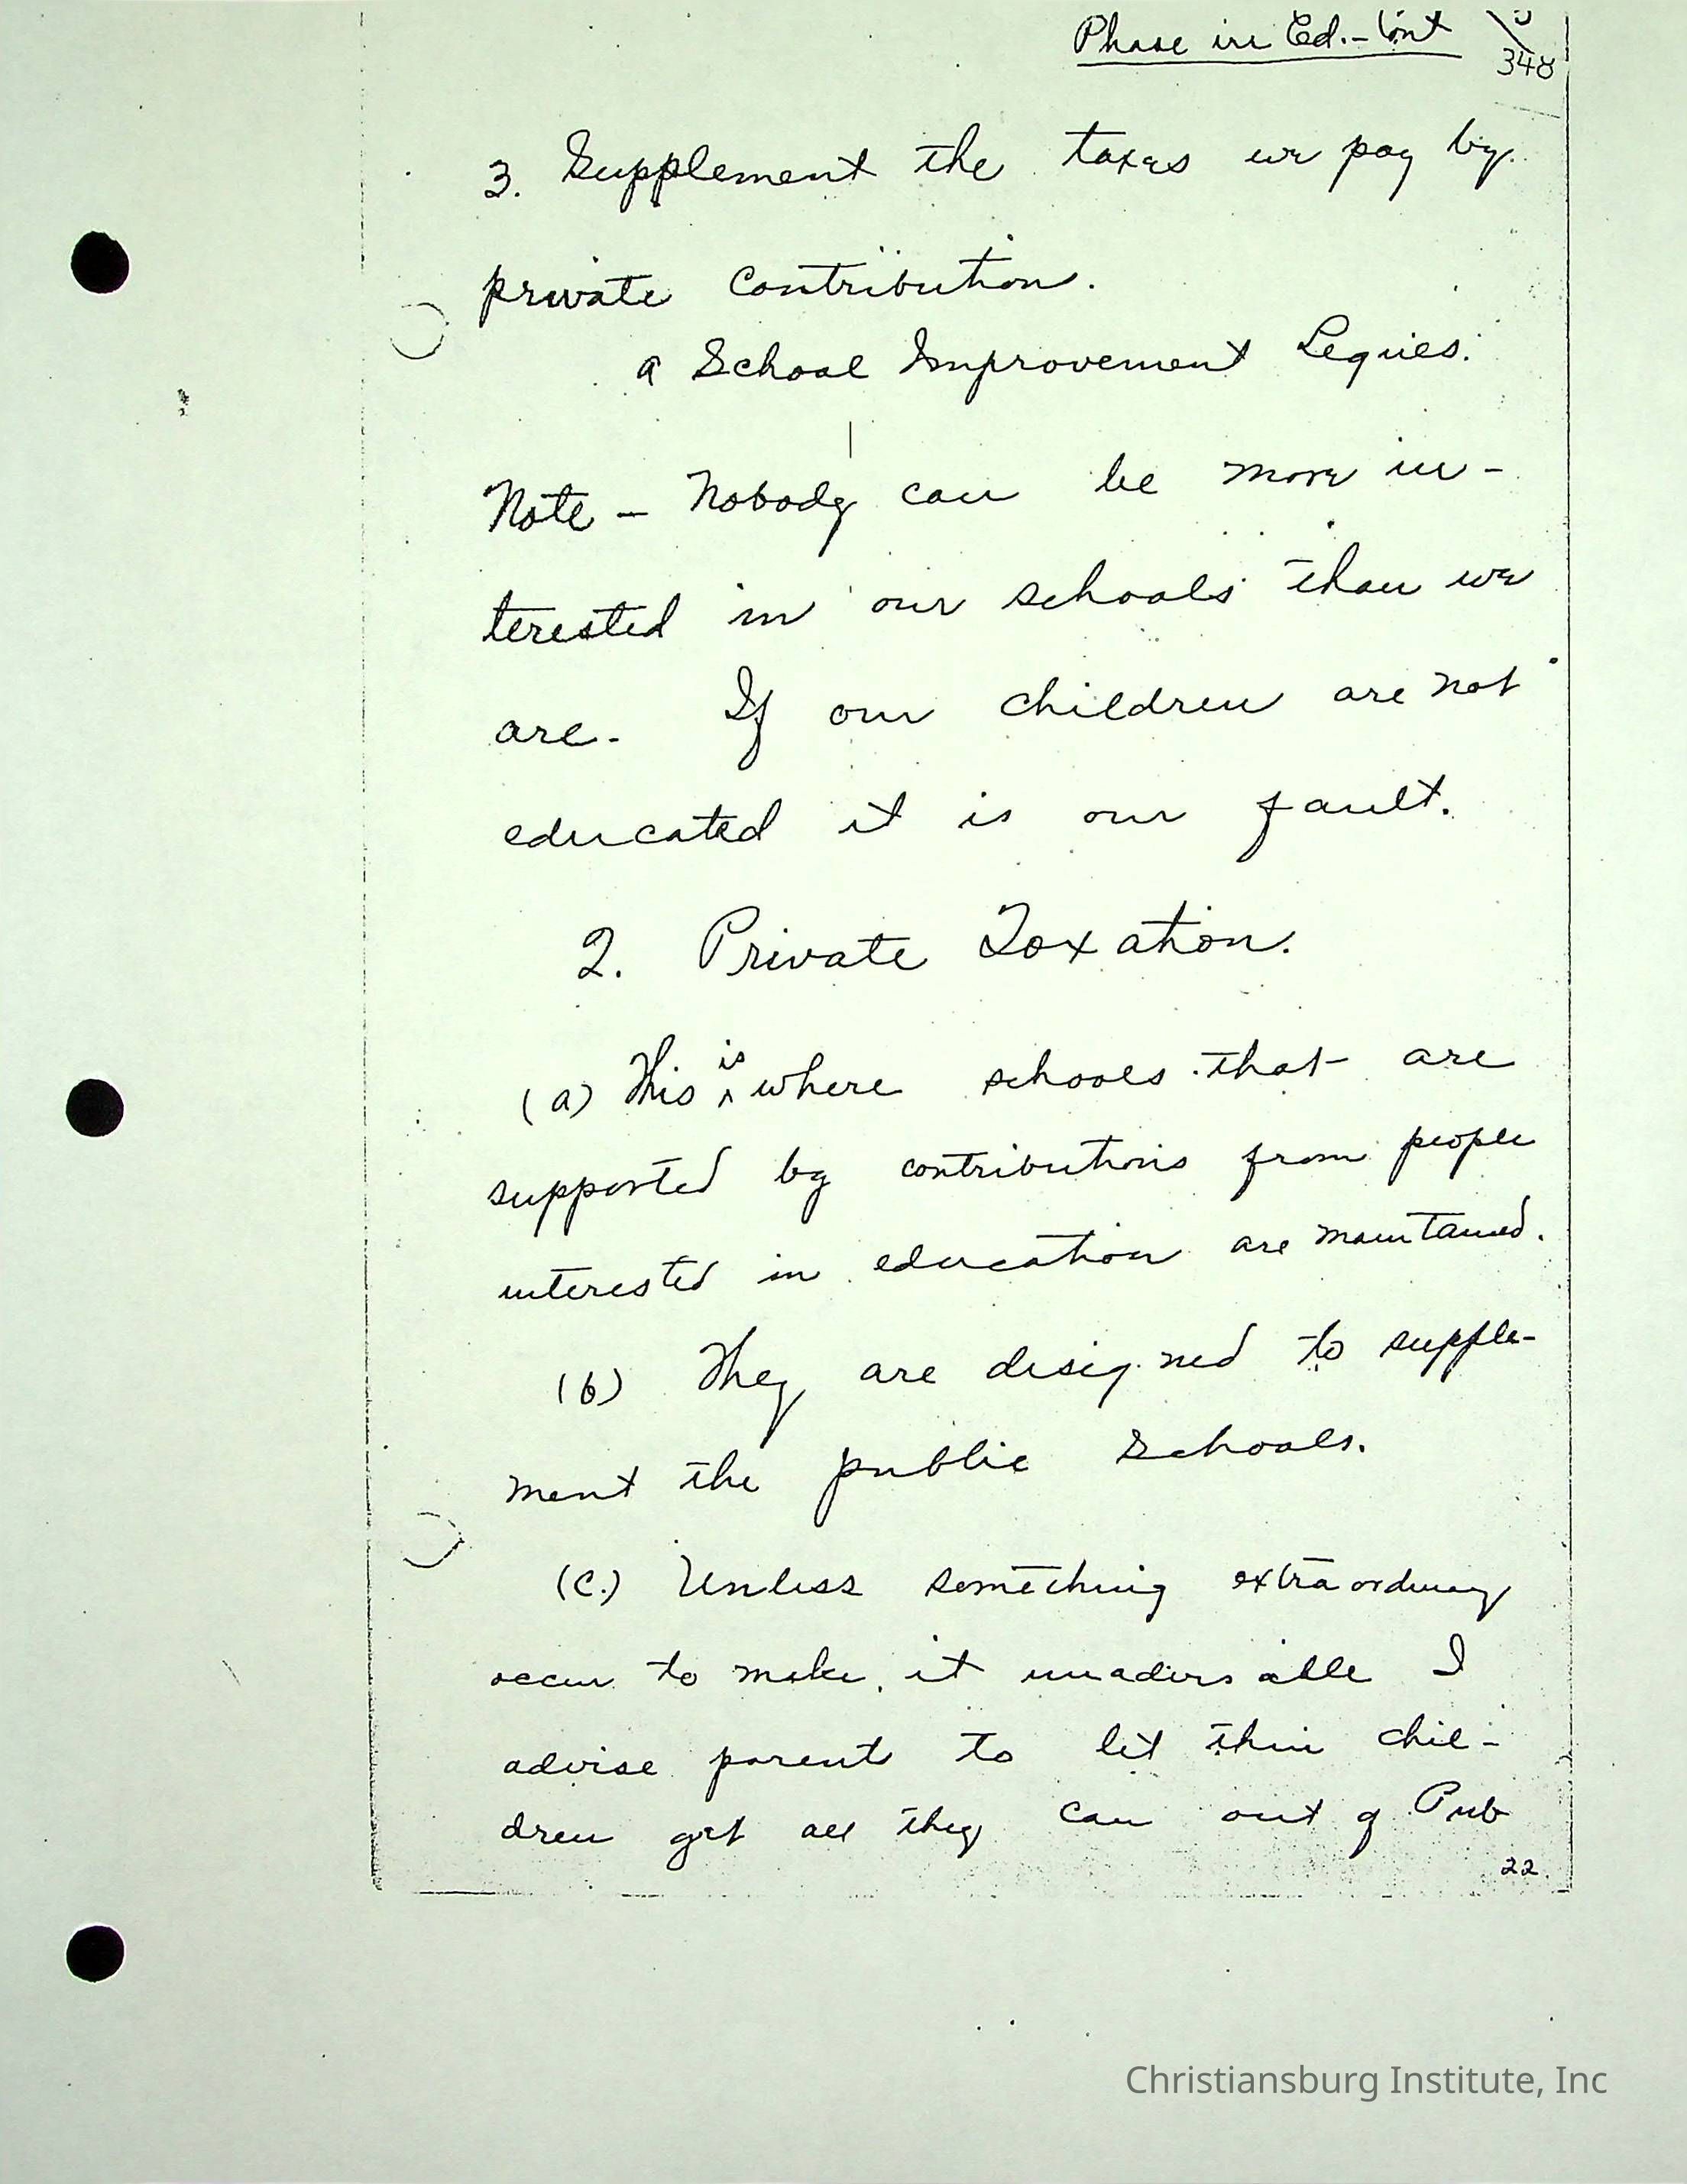 Phase in Ed. - Cont
348
3. Supplement the taxes we pay by
private contribution.
a School Improvement Legues.
Note - Nobody can be more in-
terested in our schools than we
are. If our children are not
educated it is our fault.
2. Private Taxation.
(a) This is where schools that are
supported by contributions from people
interested in education are maintained.
(b) They are designed to supple-
ment the public Schools.
(C.) Unless something extraordinary
occur to make it unadvisable I
advise parent to let their chil-
dren get all they can out of Pub
22
Christiansburg Institute, Inc